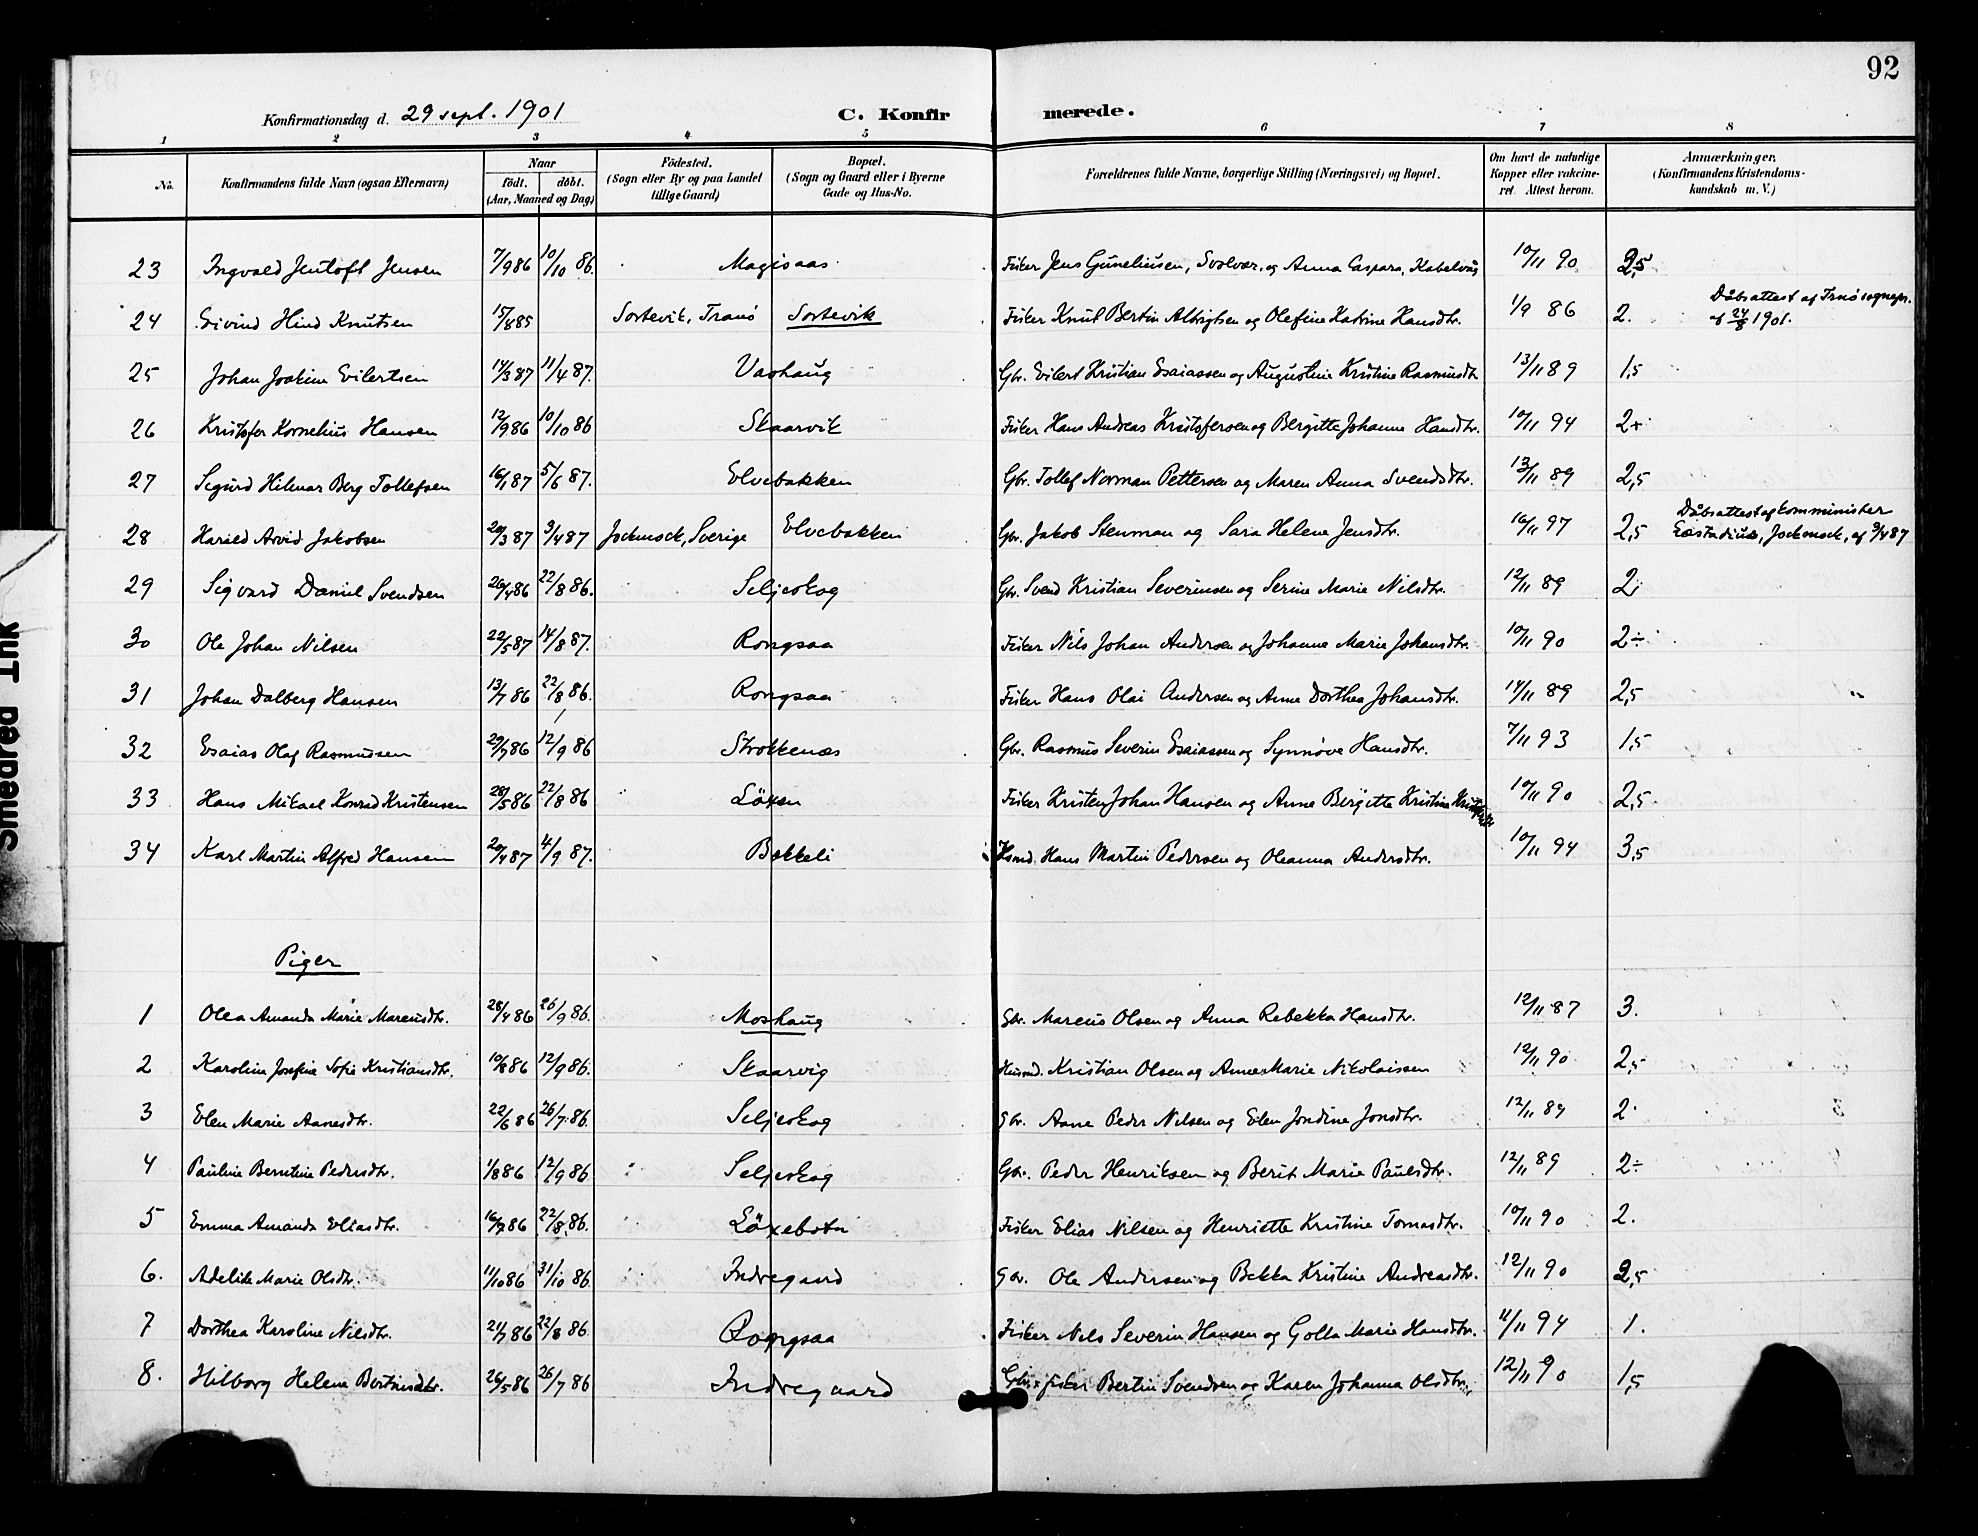 92
Konfirmationsdag d. 29 sept. 1901 C. Konfir merede.
1 2 3 4 5 6 7 8
No. Konfirmandens fulde Navn (ogsaa Efternavn) Naar født. døbt. (Aar, Maaned og Dag) Födested. (Sogn eller By og paa Landet tillige Gaard) Bopæl. (Sogn og Gaard eller i Byerne Gade og Hus-No. Forældrenes fulde Navne, borgerlige Stilling (Næringsvei) og Bopæl. Om havt de naturlige Kopper eller vakcineret. Attest herom. Anmærkninger. (Konfirmandens Kristendomskundskab m. V.)
23 Ingvald Jentoft Jensen 7/9 86 10/10 86. Magisaas Fisker Jens Guneliusen, Svolvær, og Anna Caspara, Kabelvåg 10/11 90 2,5
Dåbsattest af Tranö sognepr.
24 Eivind Hind Knutsen 15/8 85 Sortevik, Tranö Sortevik Fisker Knut Bertin Albrigtsen og Olefine Katrine Hansdtr. 1/9 86 2. af 24/8 1901.
25 Johan Joakim Eilertsen 14/3 87 11/4 87. Vashaug Gbr. Eilert Kristian Esaiassen og Augustine Kristine Rasmusdtr 13/11 89 1,5
26 Kristofer Kornelius Hansen 12/9 86 10/10 86 Skaarvik Fisker Hans Andreas Kristofersen og Bergitte Johanne Hansdtr. 10/11 94 2+
27 Sigurd Hilmar Berg Tollefsen 16/1 87 5/6 87. Elvebakken Gbr. Tollef Norman Pettersen og Maren Anna Svendsdtr. 13/11 89 2,5
Dåbsattest af komminister
28 Harald Arvid Jakobsen 20/3 87 3/4 87 Jockmock, Sverige Elvebakken Gbr. Jakob Stenman og Sara Helene Jensdtr. 16/11 97 2,5 Læstadius, Jockmock, af 9/4 87
29 Sigvard Daniel Svendsen 26/4 86 22/8 86. Seljeskog Gbr. Svend Kristian Severinsen og Serine Marie Nilsdtr. 12/11 89 2
30 Ole Johan Nilsen 22/5 87 14/8 87. Rongsaa Fisker Nils Johan Andersen og Johanne Marie Johansdtr. 10/11 90 2÷
31 Johan Dalberg Hansen 13/7 86 22/8 86. Rongsaa Fisker Hans Olai Andersen og Anne Dorthea Johansdtr. 14/11 89 2,5
32 Esaias Olaf Rasmussen 29/7 86 12/9 86 Strokkenæs Gbr. Rasmus Severin Esaiassen og Synnöve Hansdtr. 7/11 93 1,5
33 Hans Mikael Konrad Kristensen 28/5 86 22/8 86 Löxen Fisker Kristen Johan Hansen og Anne Bergitte Kristine 10/11 90 2,5
34 Karl Martin Alfred Hansen 20/4 87 4/9 87. Bakkeli Husmd. Hans Martin Pedersen og Oleanna Andersdtr. 10/11 94 3,5
Piger
1 Olea Amanda Marie Mareusdtr. 28/4 86 26/9 86. Moshaug Gbr. Mareus Olsen og Anna Rebekka Hansdtr. 12/11 87 3.
2 Karoline Josefine Sofie Kristiansdtr. 10/8 86 12/9 86. Skaarvig Husmd. Kristian Olsen og Anne Marie Nikolaissen 12/11 90 2,5
3 Elen Marie Aanesdtr. 22/6 86 26/7 86. Seljeskog Gbr. Aane Peder Nilsen og Elen Jondine Jonsdtr. 12/11 89 2
4 Pauline Berntine Pedersdtr. 1/8 86 12/9 86. Seljeskog Gbr. Peder Henriksen og Berit Marie Paulsdtr. 12/11 89 2÷
5 Emma Amanda Eliasdtr. 16/7 86 22/8 86. Löxebotn Fisker Elias Nilsen og Henriette Kristine Tomasdtr. 10/11 90 2.
6. Adelide Marie Olsdtr. 11/10 86 31/10 86. Indregaard Gbr. Ole Andersen og Bekka Kristine Andreasdtr. 12/11 90 2,5
7 Dorthea Karoline Nilsdtr. 21/7 86 22/8 86 Rongsaa Fisker Nils Severin Hansen og Golla Marie Hansdtr. 11/11 94 1.
8. Hilborg Helene Bertinsdtr. 26/5 86 26/7 86 Indregaard Gbr. & fisker Bertin Svendsen og Karen Johanna Olsdtr. 12/11 90 1,5